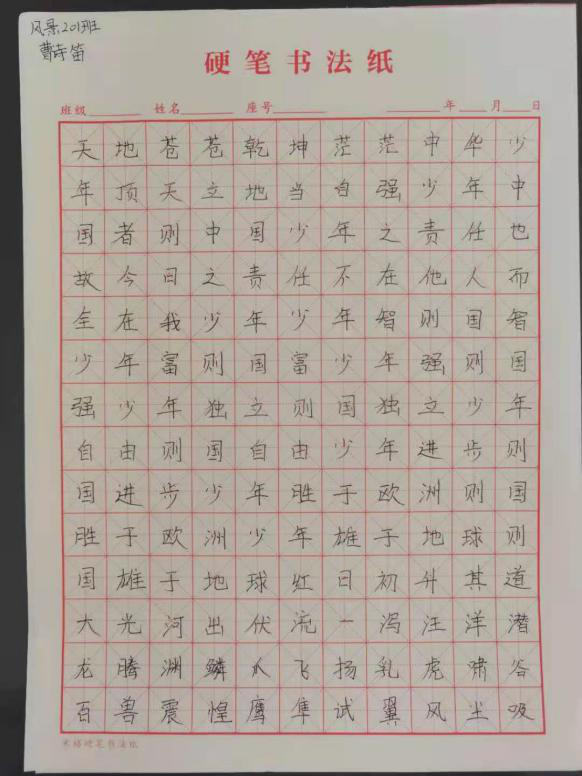 风景201班
曹诗笛
硬笔书法纸
班级 姓名 座号 年 月 日
天地苍苍乾坤茫茫中华少
年顶天立地当自强少年中
国者则中国少年之责任也
故今日之责任不在他人而
全在我少年少年智则国智
少年富则国富少年强则国
强少年独立则国独立少年
自由则国自由少年进步则
国进步少年胜于欧洲则国
胜于欧洲少年雄于地球则
国雄于地球红日初升其道
大光河出伏流一泻汪洋潜
龙腾渊鳞爪飞扬乳虎啸谷
百兽震惶鹰隼试翼风尘吸
米格硬笔书法纸